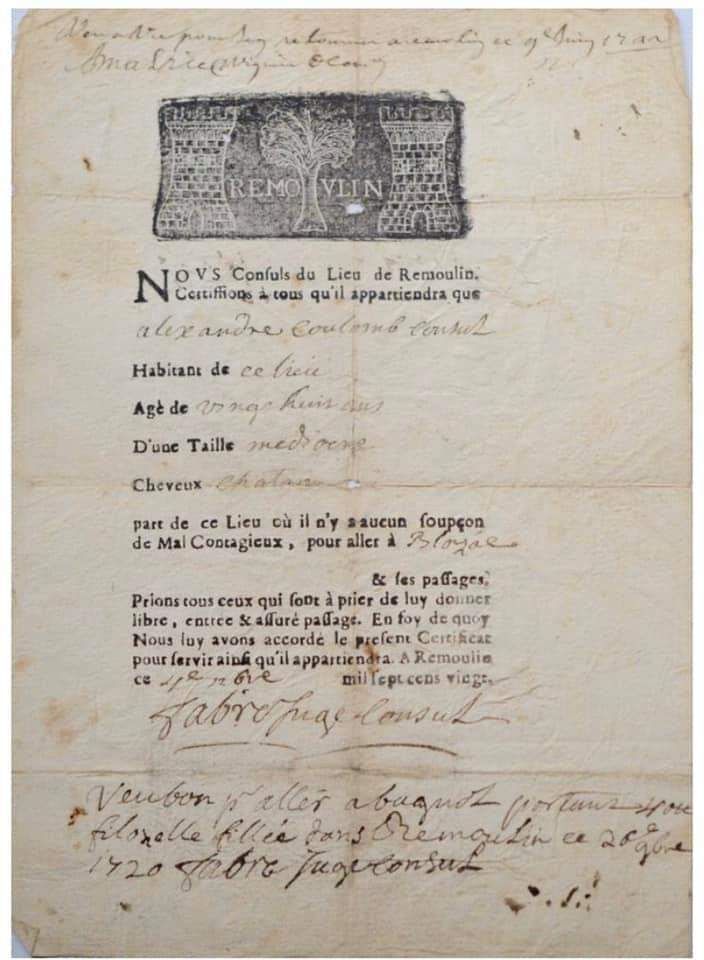 retourner a remoulin ce
REMOVLIN
NOVS Consuls du Lieu de Remoulin.
Certiffions à tous qu'il appartiendra que
alexandre coulomb consul
Habitant de ce lieu
Agè de vingt huit ans
D'une Taille mediocre
Cheveux chatain
part de ce Lieu où il n'y a aucun soupçon
de Mal Contagieux, pour aller à
& ses passages,
Prions tous ceux qui sont à prier de luy donner
libre, entrée & assuré passage. En foy de quoy
Nous luy avons accordé le present Certificat
pour servir ainsi qu'il appartiendra. A Remoulin
ce 4e mil sept cens vingt,
fabre Juge Consul
Veu bon pr aller a portant
fillée dans Remoulin ce 20e
1720 fabre Juge consul